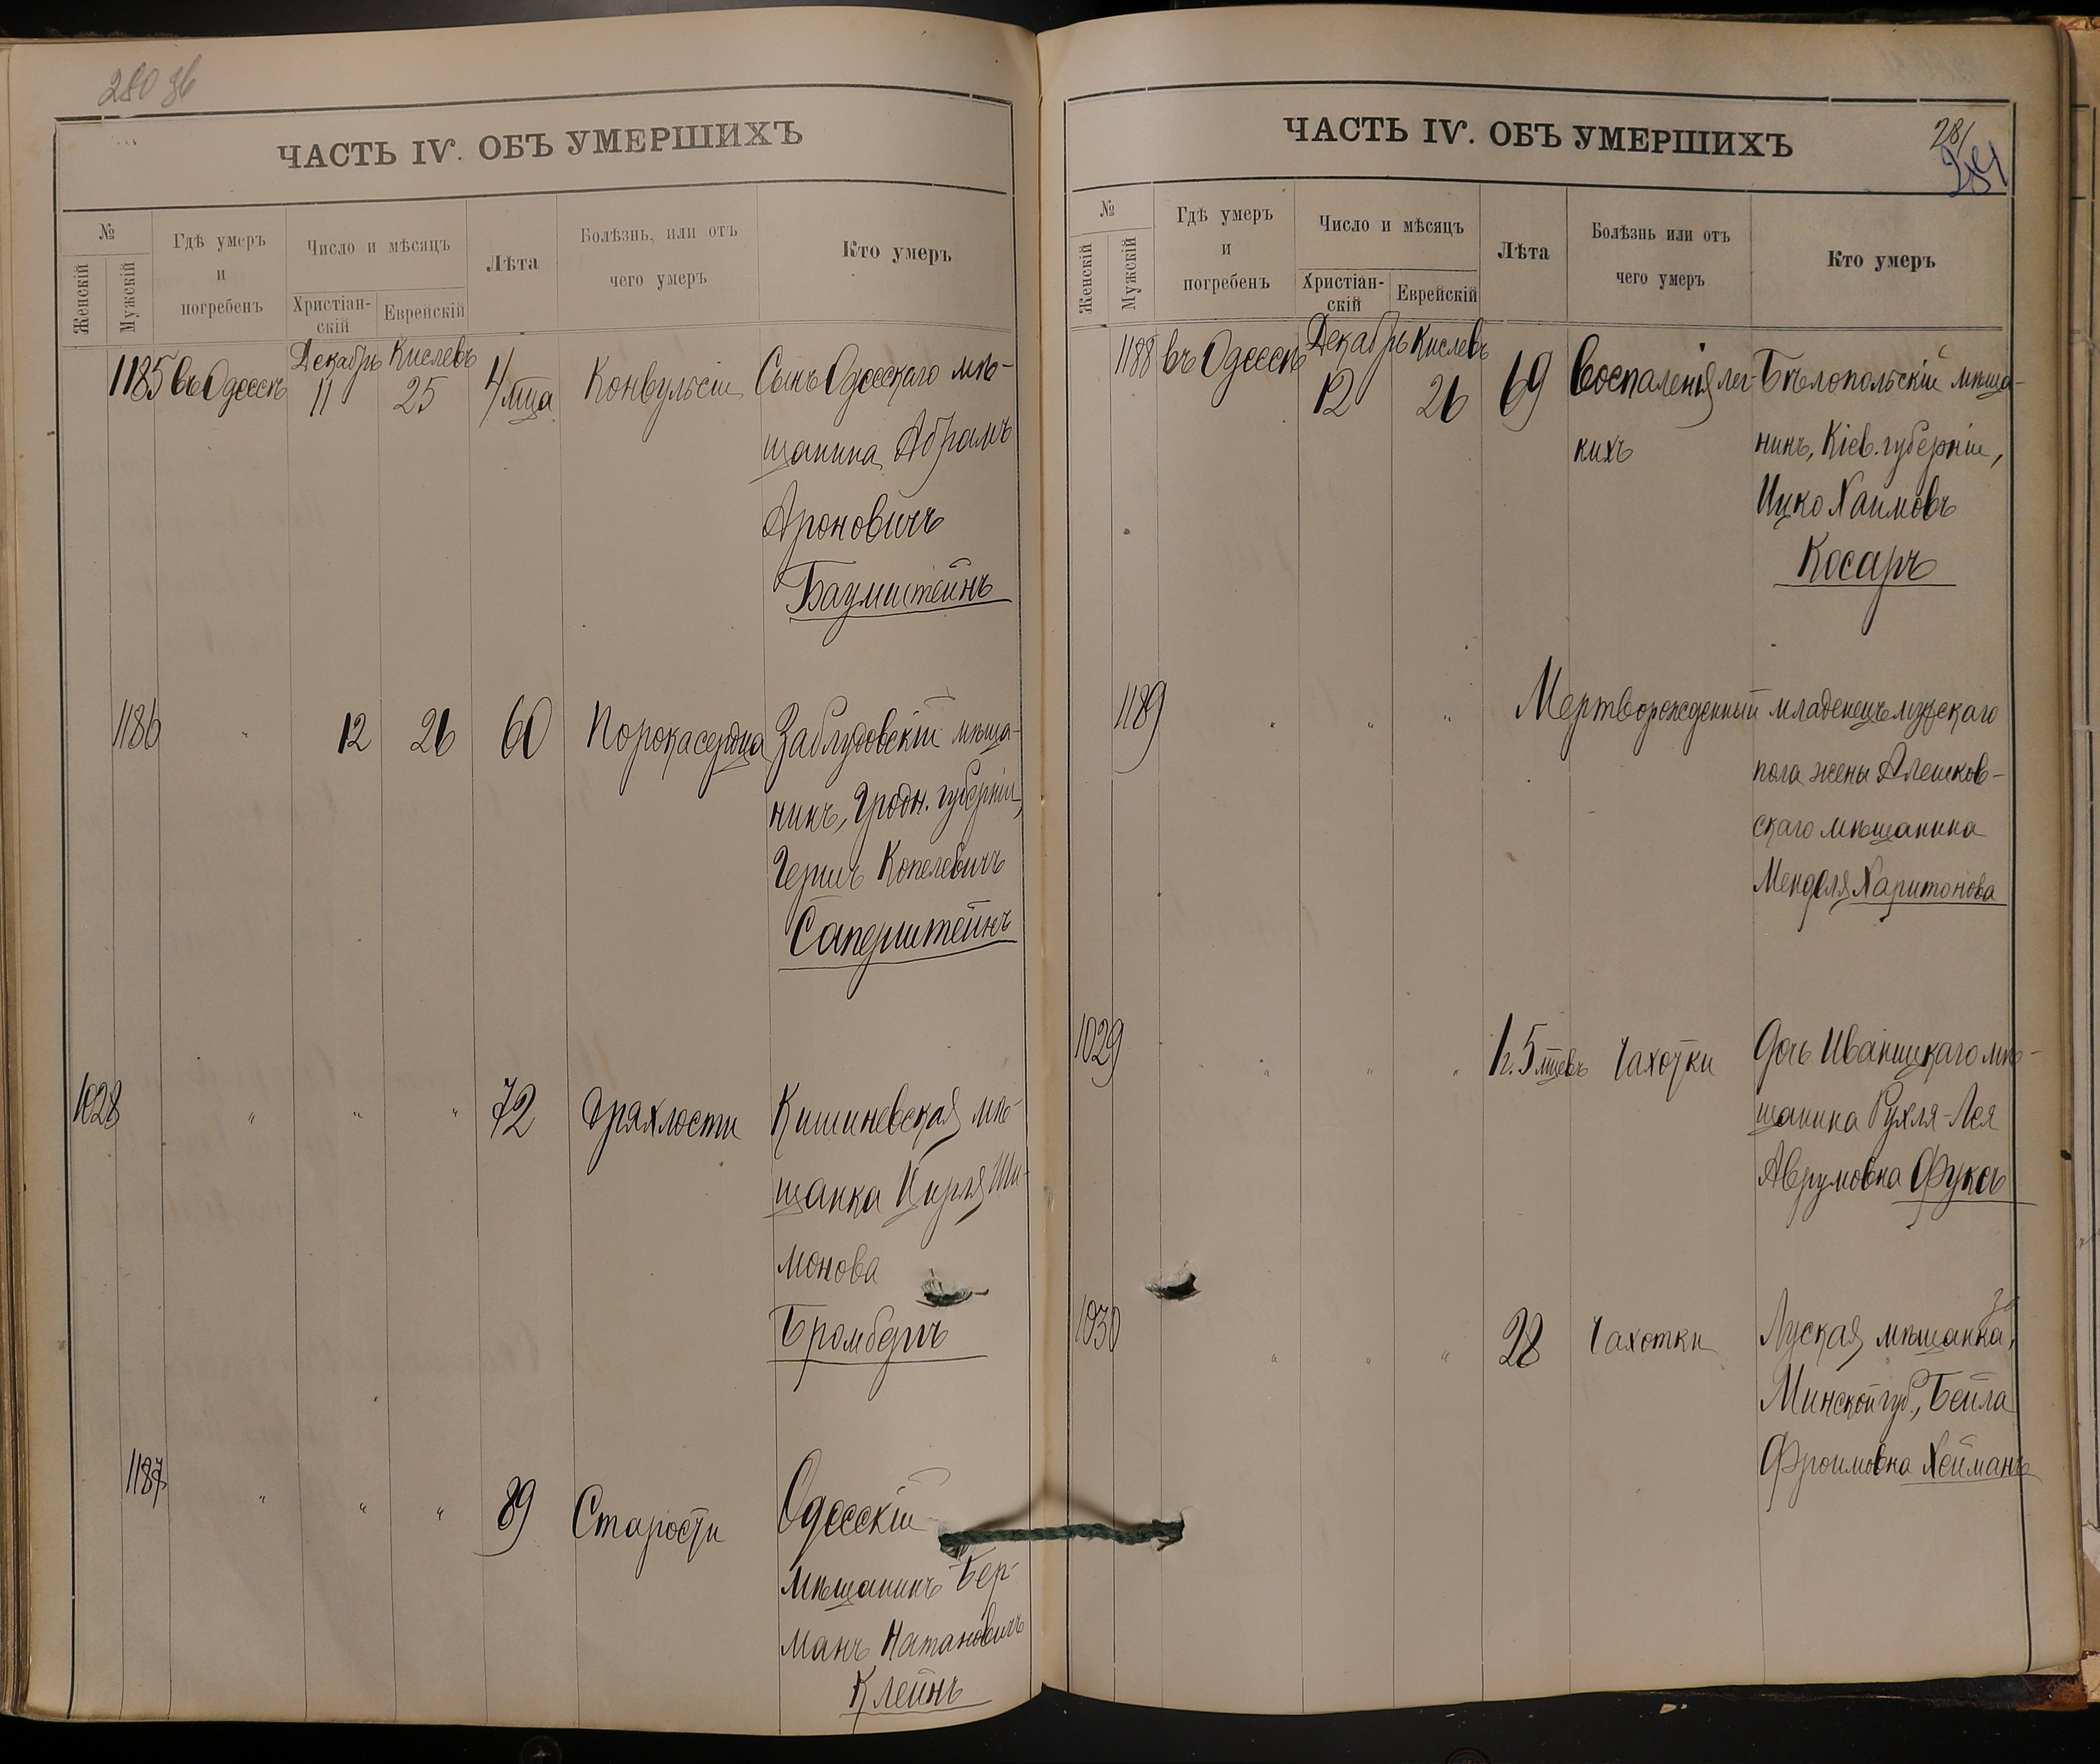 280 об
ЧАСТЬ IV. ОБЪ УМЕРШИХЪ
№
Женскій
Мужскій
Гдѣ умеръ
и
погребенъ
Число и мѣсяцъ
Христіан-
скій
Еврейскій
Лѣта
Болѣзнь, или отъ
чего умеръ
Кто умеръ
Декабрь Кислевъ
1185 въ Одессѣ 11 25 4 мца Конвульсіи Сынъ Одесскаго мѣ-
щанина Абрамъ
Ароновичъ
Баумштейнъ
1186 " 12 26 60 Порока сердца Заблудовскій мѣща-
нинъ, Гродн. губерніи,
Гершъ Копелевичъ
Саперштейнъ
1028 " " " 72 Дряхлости Кишиневская мѣ-
щанка Цирля Ши-
монова
Бромбергъ
1187 " " " 89 Старости Одесскій
мѣщанинъ Бер-
манъ Натановичъ
Клейнъ
281
281
ЧАСТЬ IV. ОБЪ УМЕРШИХЪ
№
Женскій
Мужскій
Гдѣ умеръ
и
погребенъ
Число и мѣсяцъ
Христіан-
скій
Еврейскій
Лѣта
Болѣзнь или отъ
чего умеръ
Кто умеръ
Декабрь Кислевъ
1188 въ Одессѣ 12 26 69 Воспаленія лег- Бѣлопольскій мѣща-
кихъ нинъ, Кіев. губерніи,
Ицко Хаимовъ
Косаръ
1189 " " " Мертворожденный младенецъ мужскаго
пола жены Алешков-
скаго мѣщанина
Менделя Харитонова
1029 " " " 1 г. 5 мцевъ Чахотки Дочь Иваницкаго мѣ-
щанина Рухля-Лея
Аврумовна Фуксъ
1030 " " " 28 Чахотки Луская мѣщанка,
Минской губ., Бейла
Фроимовна Хейманъ